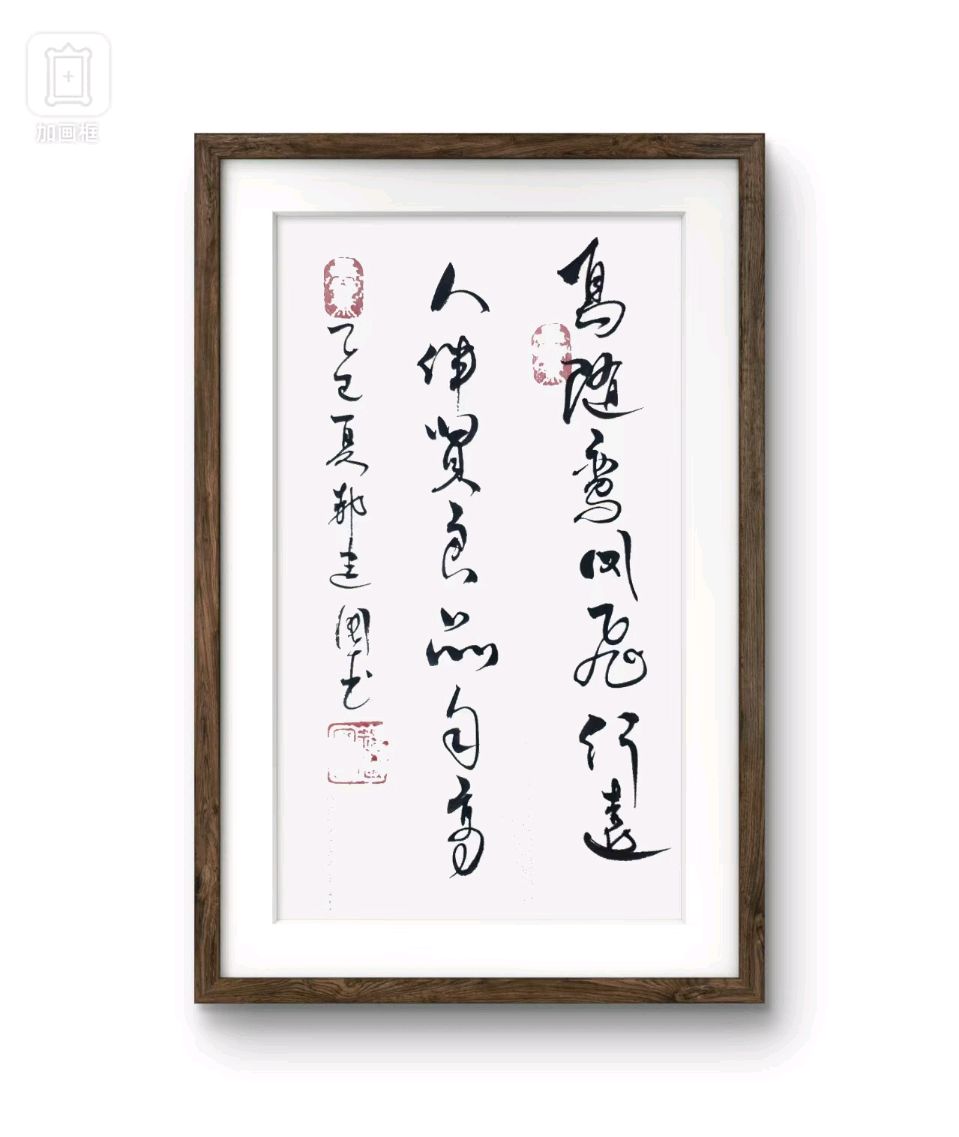 加画框
鸟随鸾凤飞行远
人伴贤良品自高
乙巳夏郝建国书